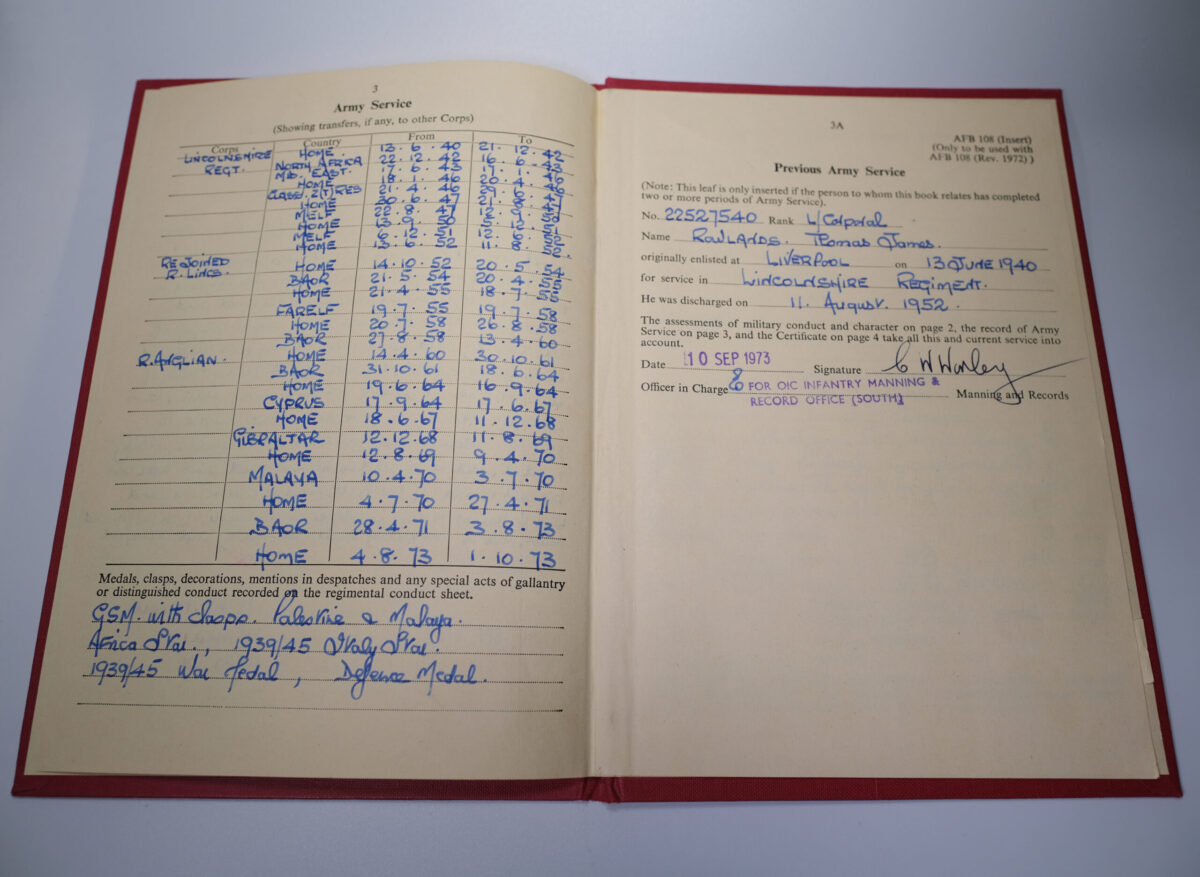 3
Army Service
(Showing transfers, if any, to other Corps)
Corps Country From To
LINCOLNSHIRE HOME. 13.6.40 21.12.42
REGT. NORTH AFRICA 22.12.42 16.6.43
MID. EAST. 17.6.43
HOME 18.1.46 20.4.46
CLASS RES 21.4.46
HOME 30.6.47 21.8.47
MELF 22.8.47
HOME 13.9.50
MELF 6.12.51 12.6.52
HOME 13.6.52 11.8.52.
REJOINED HOME 14.10.52 20.5.54
R. LINCS. BAOR 21.5.54 20.4.55
HOME 21.4.55 18.7.55
FARELF 19.7.55 19.7.58
HOME 20.7.58 26.8.58
BAOR 27.8.58 13.4.60
R. ANGLIAN. HOME 14.4.60 30.10.61
BAOR 31.10.61 18.6.64
HOME 19.6.64 16.9.64
CYPRUS 17.9.64 17.6.67
HOME 18.6.67 11.12.68
GIBRALTAR 12.12.68 11.8.69
HOME 12.8.69 9.4.70
MALAYA 10.4.70 3.7.70
HOME 4.7.70 27.4.71
BAOR 28.4.71 3.8.73
HOME 4.8.73 1.10.73
Medals, clasps, decorations, mentions in despatches and any special acts of gallantry
or distinguished conduct recorded on the regimental conduct sheet.
GSM. with clasps. Palestine & Malaya.
Africa Star., 1939/45 Italy Star.
1939/45 War Medal, Defence Medal.
3A
AFB 108 (Insert)
(Only to be used with
AFB 108 (Rev. 1972) )
Previous Army Service
(Note: This leaf is only inserted if the person to whom this book relates has completed
two or more periods of Army Service).
No. 22527540 Rank L/Corporal
Name ROWLANDS. Thomas James.
originally enlisted at LIVERPOOL on 13 JUNE 1940
for service in LINCOLNSHIRE REGIMENT.
He was discharged on 11. August. 1952.
The assessments of military conduct and character on page 2, the record of Army
Service on page 3, and the Certificate on page 4 take all this and current service into
account.
Date 10 SEP 1973 Signature C W Worley
Officer in Charge FOR OIC INFANTRY MANNING & RECORD OFFICE (SOUTH) Manning and Records